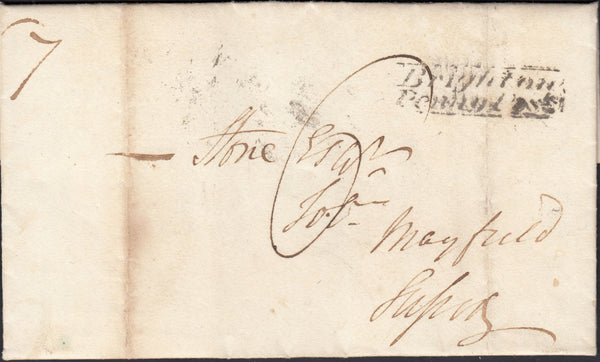 7
Brighton
Penny Post
— Stone Esqr
Sor
Mayfield
Sussex